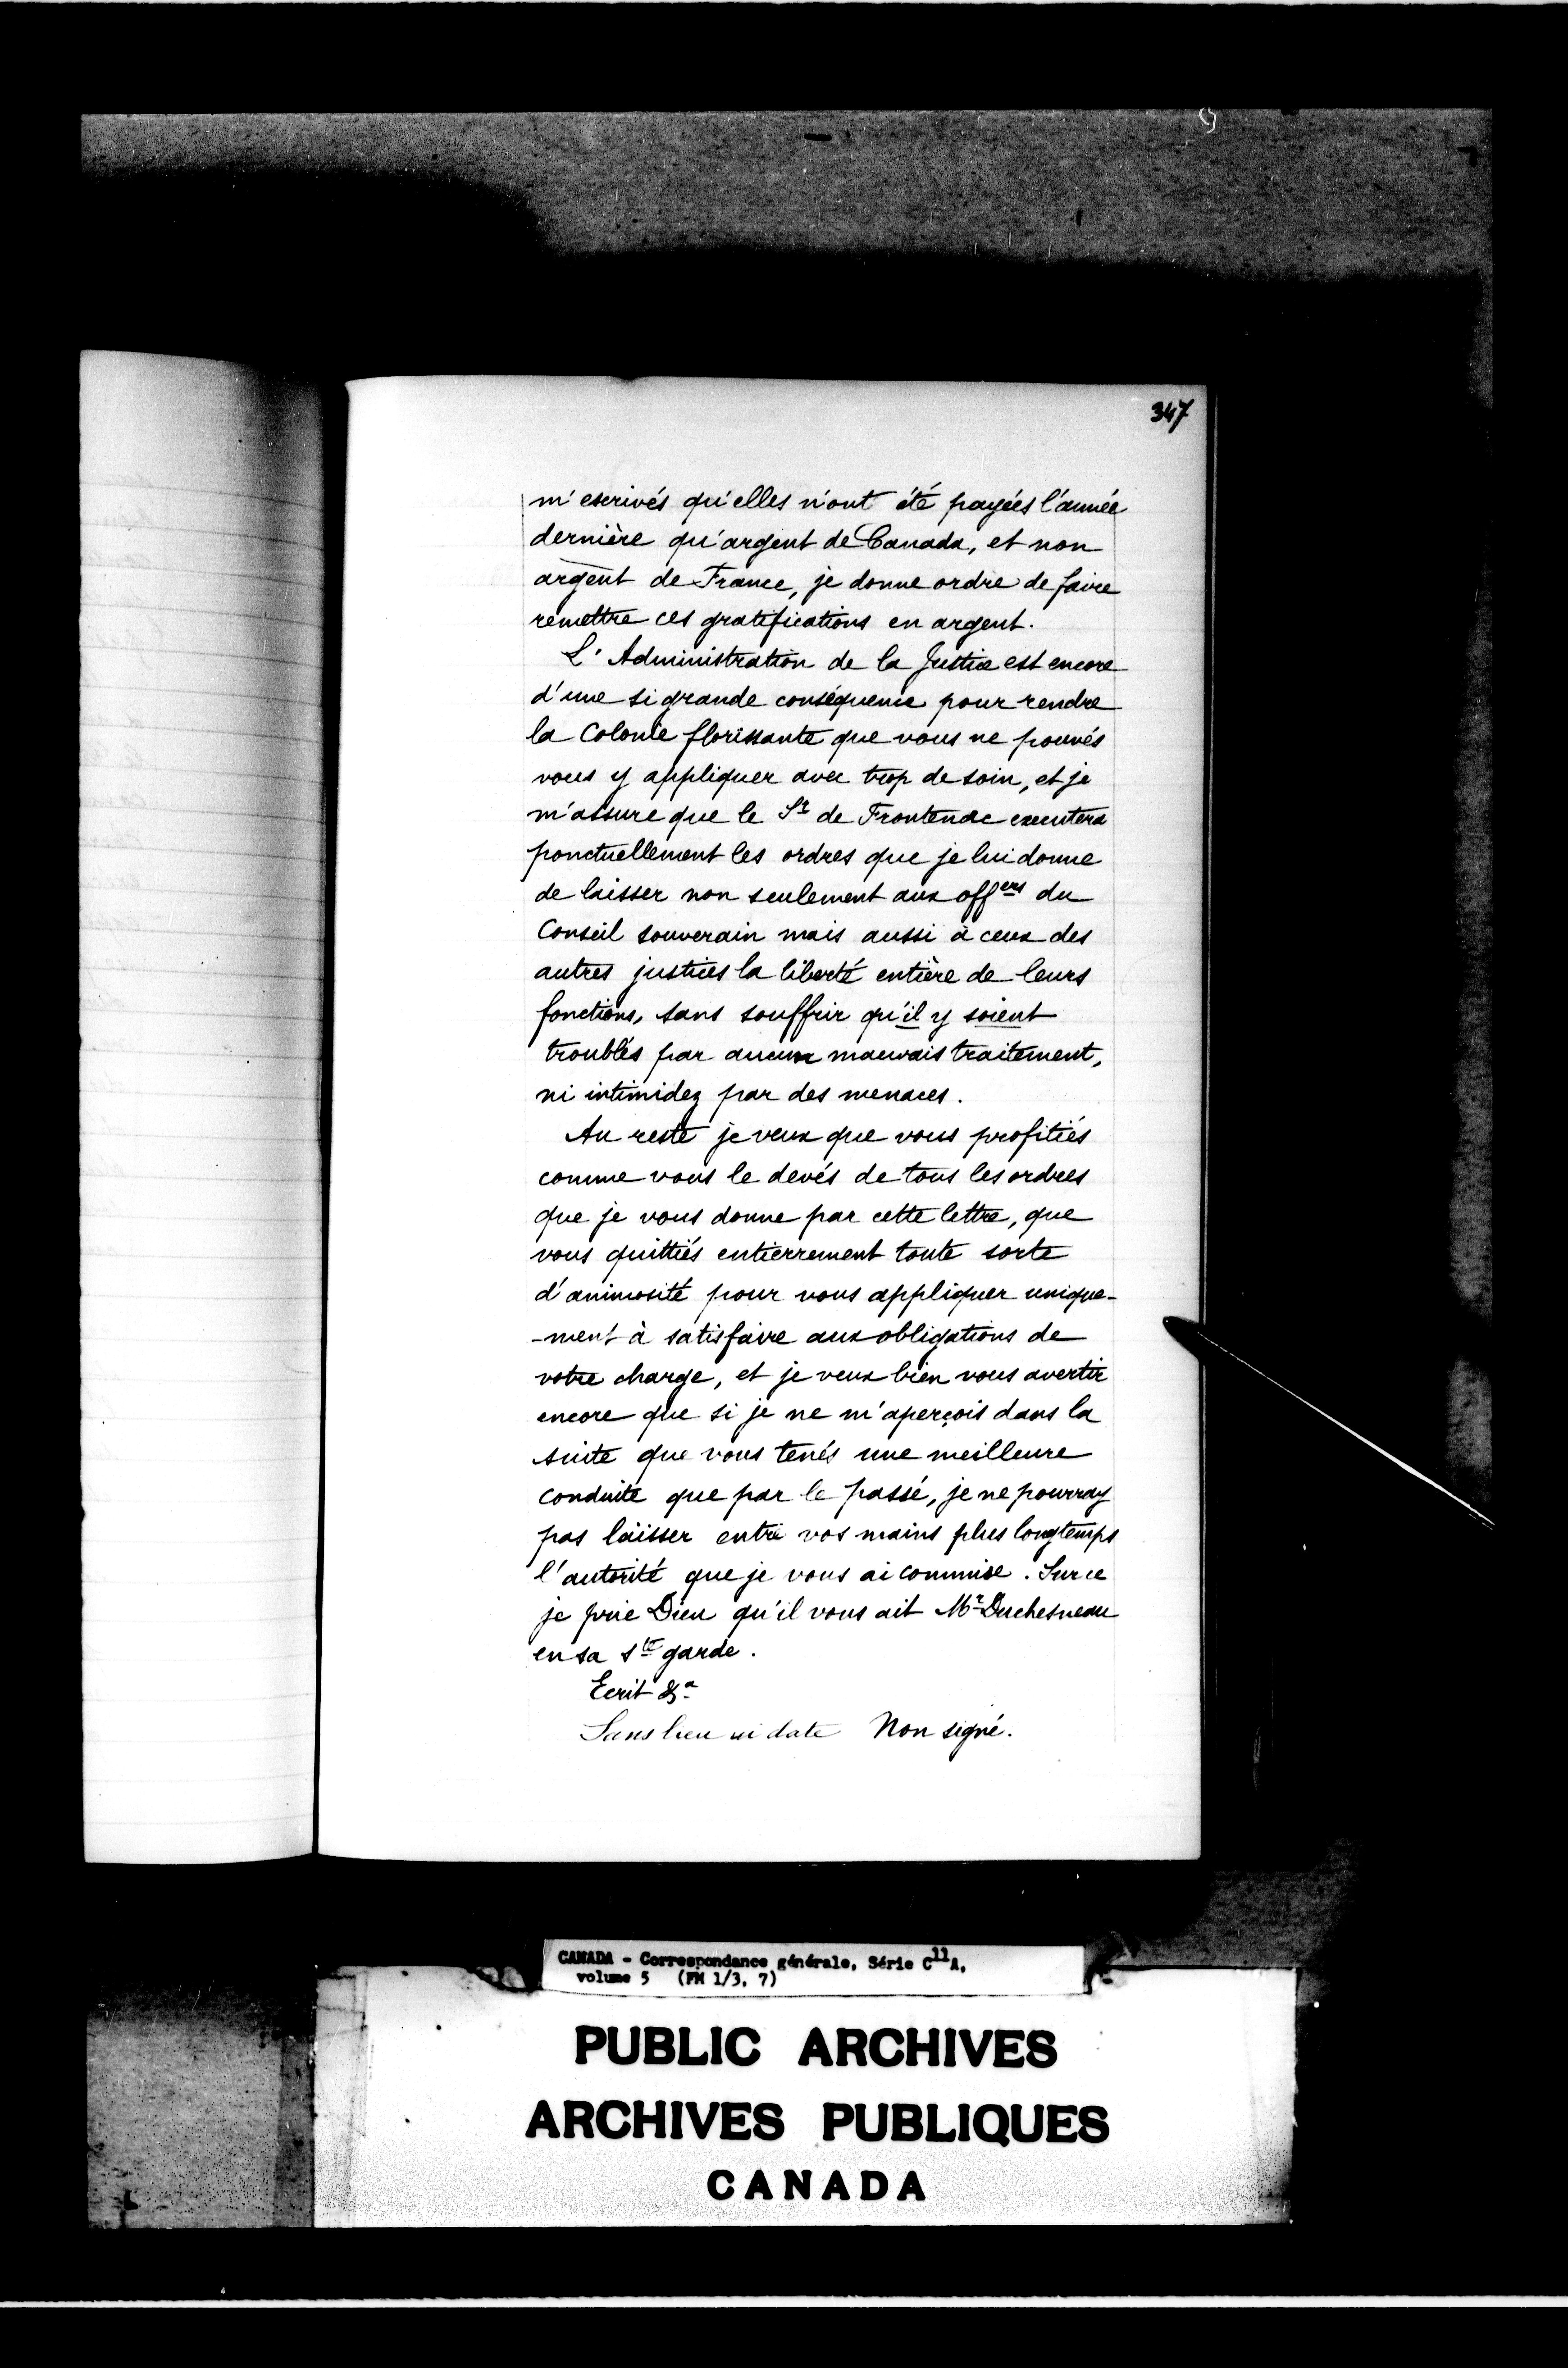 347
m'escrivés qu'elles n'ont été payées l'année
dernière qu'argent de Canada, et non
argent de France, je donne ordre de faire
remettre ces gratifications en argent.
L'Administration de la Justice est encore
d'une si grande conséquence pour rendre
la Colonie florissante que vous ne pouvés
vous y appliquer avec trop de soin, et je
m'assure que le Sr de Frontenac executera
ponctuellement les ordres que je lui donne
de laisser non seulement aux offers du
Conseil souverain mais aussi à ceux des
autres justices la liberté entière de leurs
fonctions, sans souffrir qu'il y soient
troublés par aucun mauvais traitement,
ni intimidez par des menaces.
Au reste je veux que vous profitiés
comme vous le devés de tous les ordres
que je vous donne par cette lettre, que
vous quittiés entierrement toute sorte
d'animosité pour vous appliquer unique-
-ment à satisfaire aux obligations de
votre charge, et je veux bien vous avertir
encore que si je ne m'aperçois dans la
suite que vous tenés une meilleure
conduite que par le passé, je ne pourray
pas laisser entre vos mains plus longtemps
l'autorité que je vous ai commise. Sur ce
je prie Dieu qu'il vous ait Mr Duchesneau
en sa ste garde.
Ecrit &a
Sans lieu ni date Non signé.
CANADA - Correspondance générale, Série C11A,
volume 5 (FM 1/3, 7)
PUBLIC ARCHIVES
ARCHIVES PUBLIQUES
CANADA